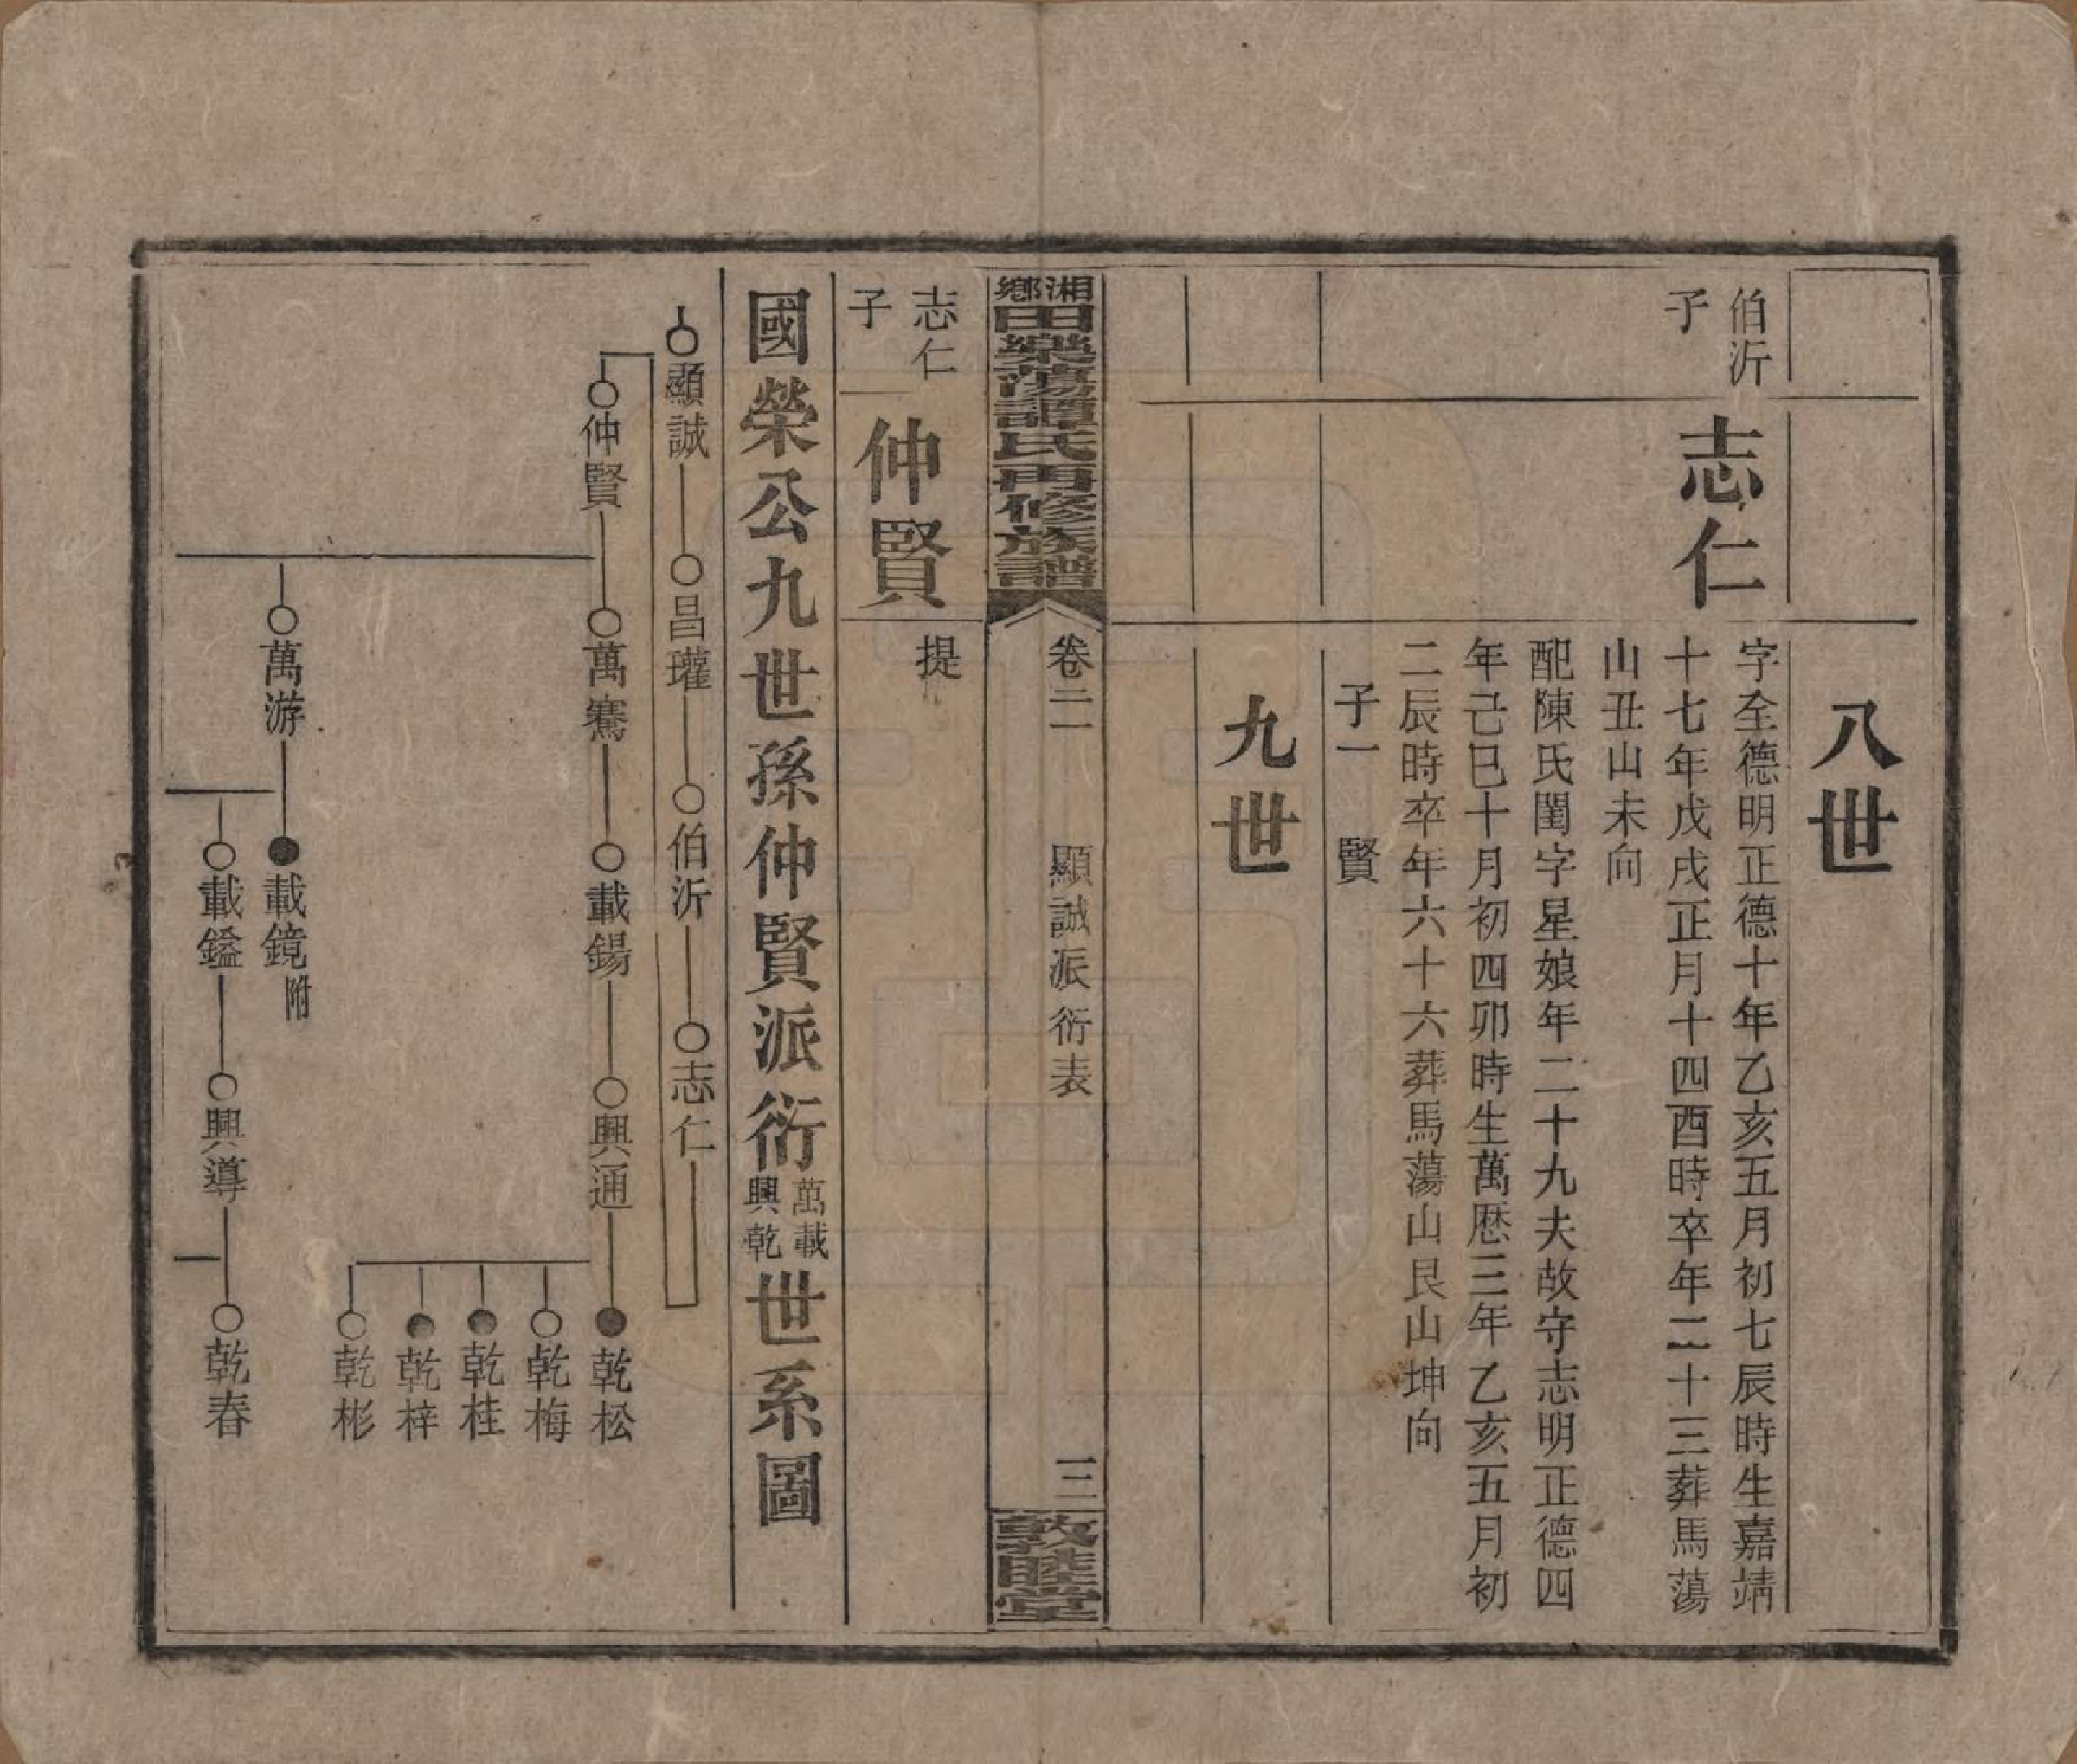 八世
伯沂子
志仁
字全德明正德十年乙亥五月初七辰時生嘉靖
十七年戊戌正月十四酉時卒年二十三葬馬蕩
山丑山未向
配陳氏閨字星娘年二十九夫故守志明正德四
年己巳十月初四卯時生萬厯三年乙亥五月初
二辰時卒年六十六葬馬蕩山艮山坤向
子一 賢
九世
湘鄉田樂蕩譚氏再修族譜
卷二 顯誠派衍表 三
敦睦堂
志仁子
仲賢
提
國榮公九世孫仲賢派衍萬載興乾世系圖
顯誠 昌瓘 伯沂 志仁
仲賢 萬騫 載錫 興通 乾松
乾梅
乾桂
乾梓
乾彬
萬游 載鏡附
載鎰 興導 乾春